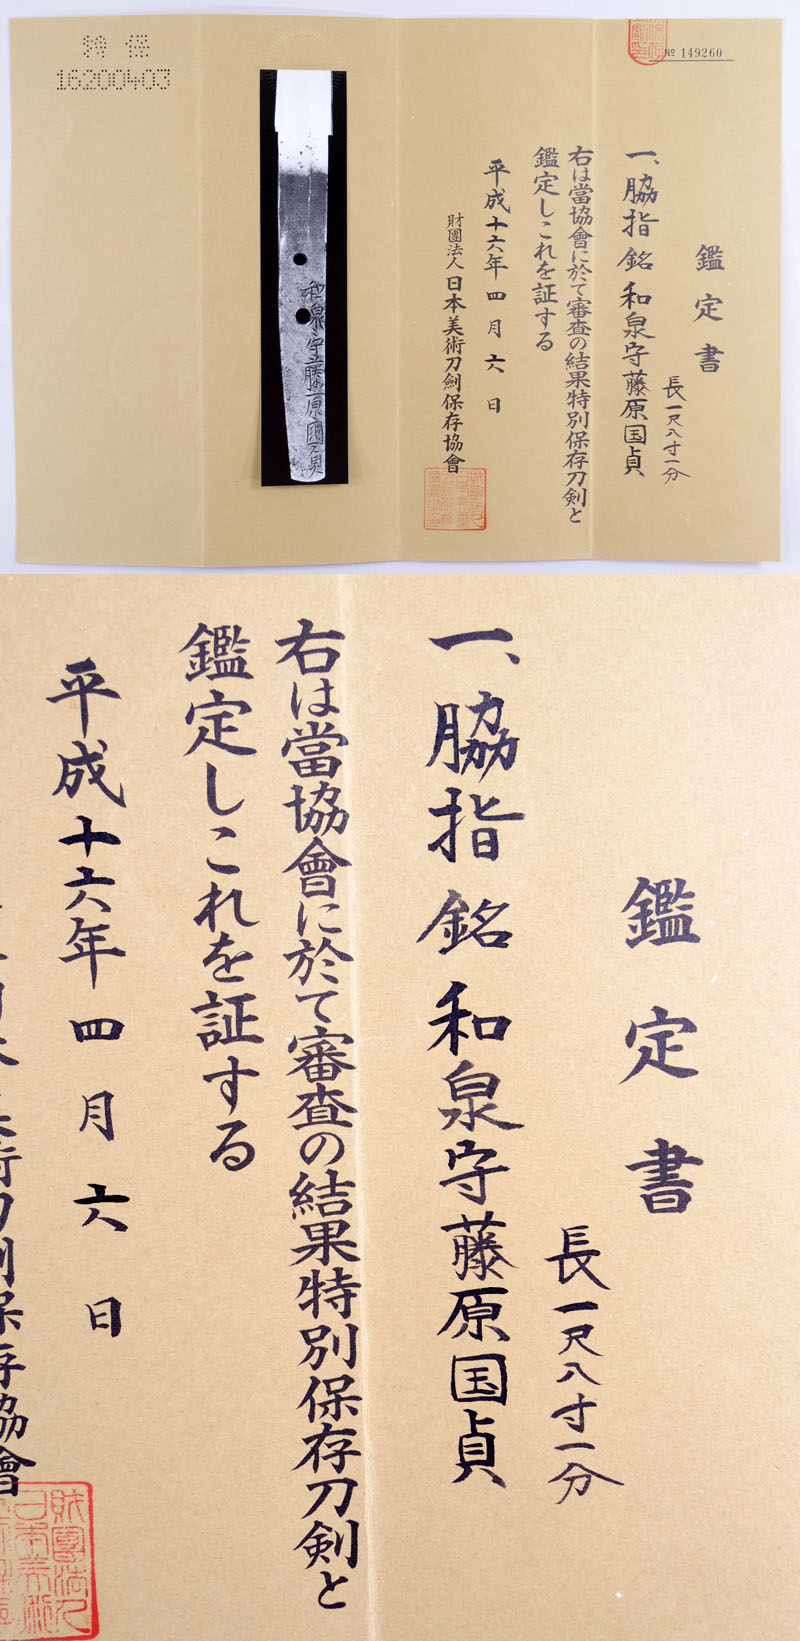 特保
16200403
№ 149260
鑑定書
一、脇指 銘 和泉守藤原国貞
長一尺八寸一分
右は當協會に於て審査の結果特別保存刀剣と
鑑定しこれを証する
平成十六年四月六日
財團法人 日本美術刀劍保存協會
和泉守藤原國貞
鑑定書
一、脇指 銘 和泉守藤原国貞
長一尺八寸一分
右は當協會に於て審査の結果特別保存刀剣と
鑑定しこれを証する
平成十六年四月六日
術刀劍保存協會